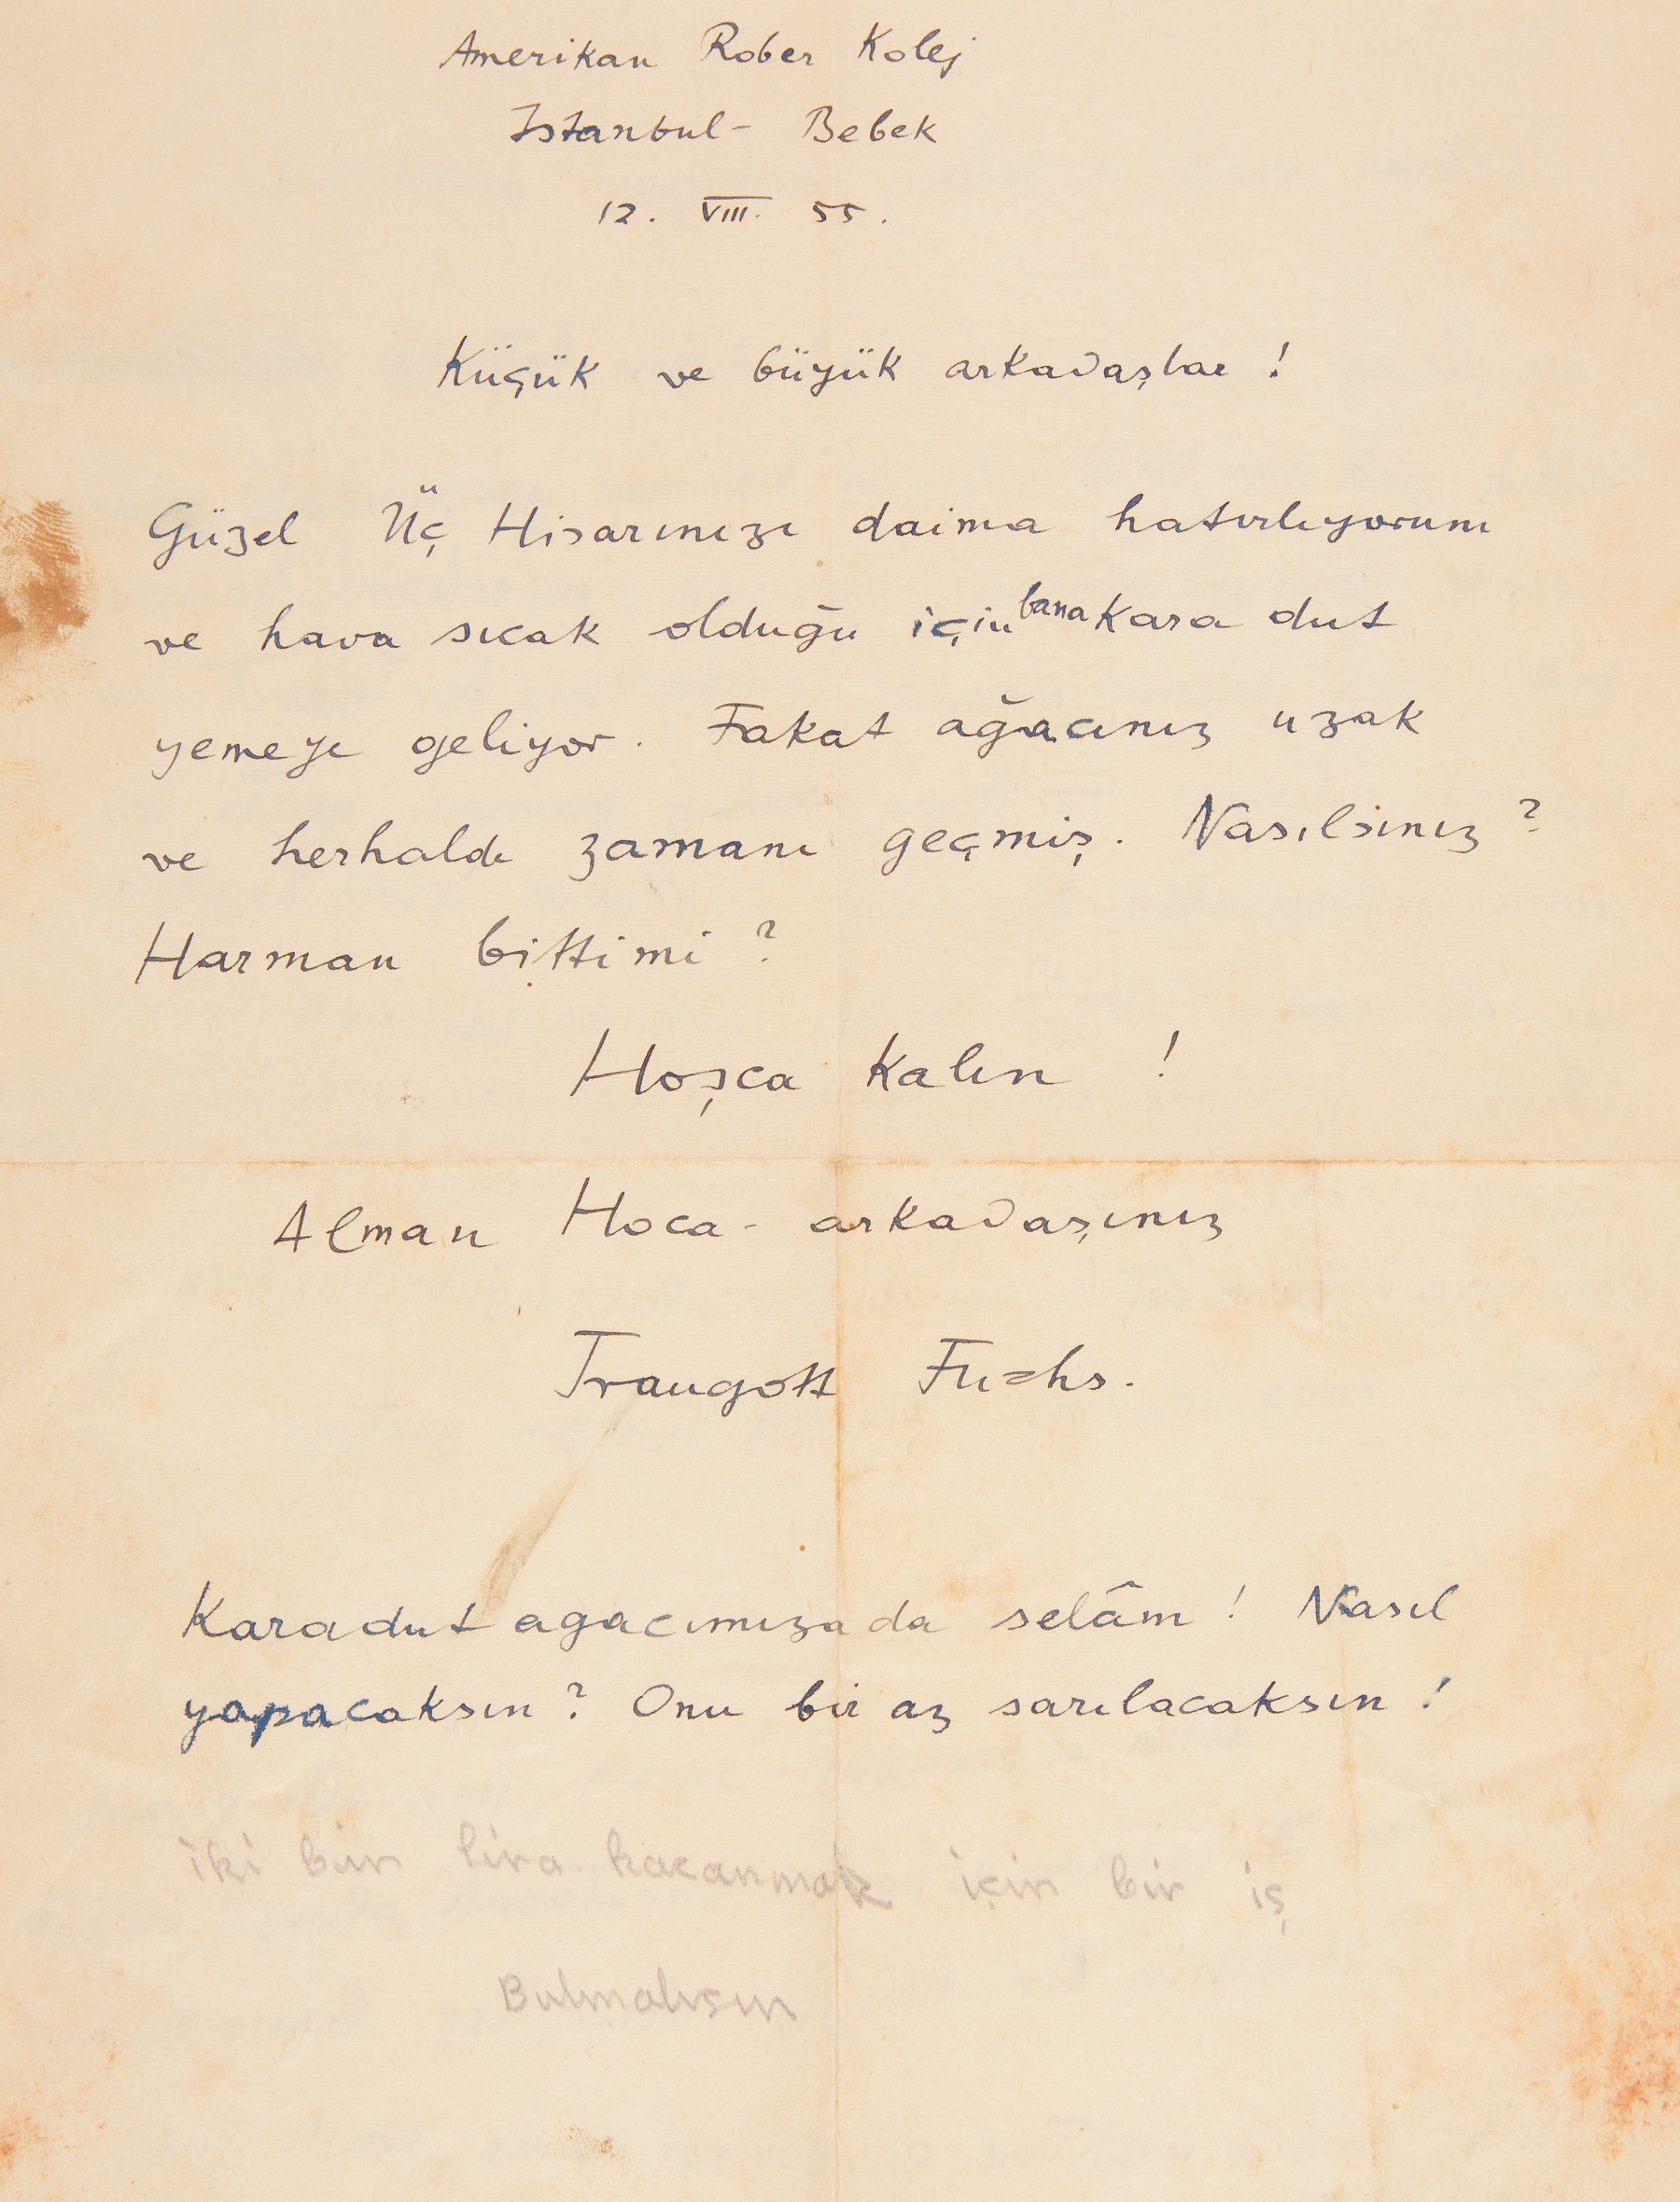 Amerikan Rober Kolej
Istanbul - Bebek
12. VIII. 55.
Küçük ve büyük arkadaşlar !
Güzel Üç Hisarınızı daima hatırlıyorum
ve hava sıcak olduğu için bana Kara dut
yemeye geliyor. Fakat ağacınız uzak
ve herhalde zamanı geçmiş. Nasılsınız ?
Harman bittimi ?
Hoşca Kalın !
Alman Hoca - arkadaşınız
Traugott Fuchs.
Karadut agacımıza da selâm ! Nasıl
yapacaksın ? Onu bir az sarılacaksın !
iki bin lira kazanmak için bir iş
Bulmalısın